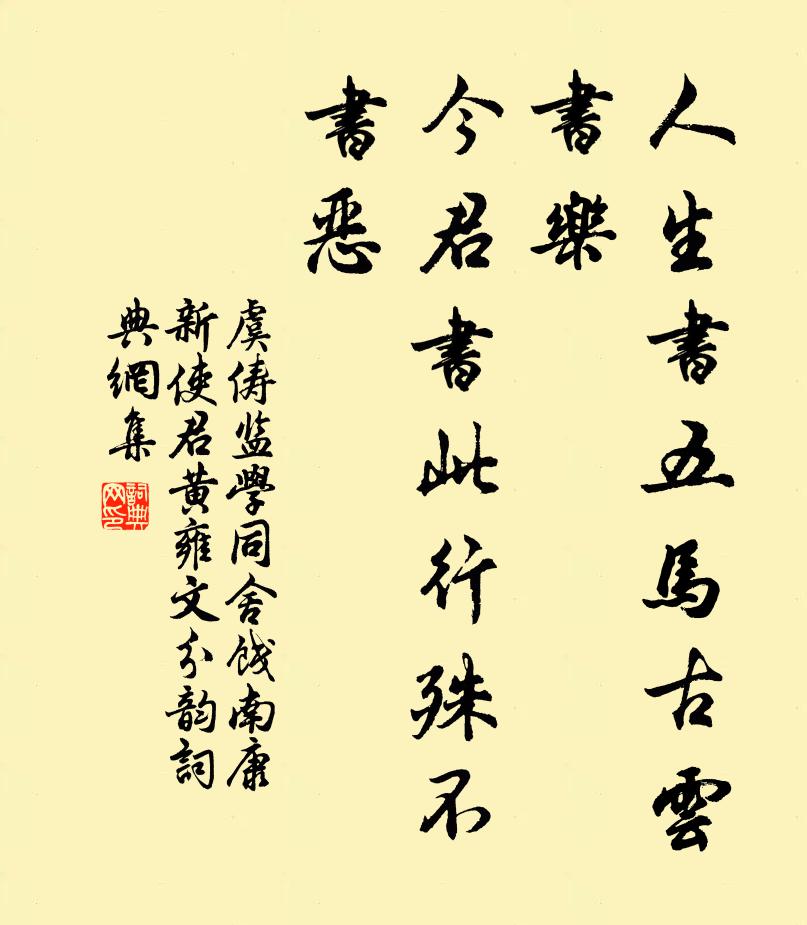 人生書五馬古雲
書樂
今君書此行殊不
書惡
虞儔監學同舍餞南康
新使君黃雍文分韵詞
典網集
詞典
网印